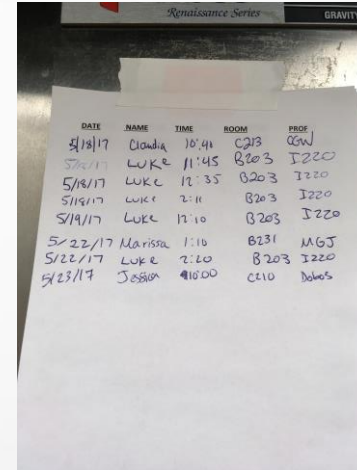 Renaissance Series
GRAVITY
DATE NAME TIME ROOM PROF
5/18/17 Claudia 10:41 C213 CGW
5/18/17 LUKe 11:45 B203 I220
5/18/17 LUKe 12:35 B203 I220
5/18/17 LUKe 2:11 B203 I220
5/19/17 LUKe 12:10 B203 I220
5/22/17 Marissa 1:10 B231 MGJ
5/22/17 LUKe 2:20 B203 I220
5/23/17 Jessica 10:00 C210 Dobos